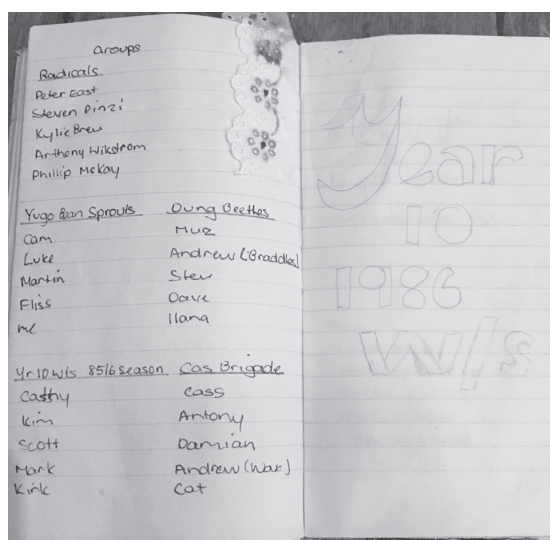 Groups
Radicals
Peter East
Steven Pinzi
Kylie Brew
Anthony Wikstrom
Phillip McKay
Yugo Bean Sprouts
Cam
Luke
Martin
Fliss
me
Dung Beethes
Muz
Andrew (Braddles)
Stew
Dave
Ilana
Yr 10 W/s 85/6 season
Cathy
Kim
Scott
Mark
Kirk
Cas Brigade
Cass
Antony
Damian
Andrew (War)
Cat
Year
10
1986
W/S